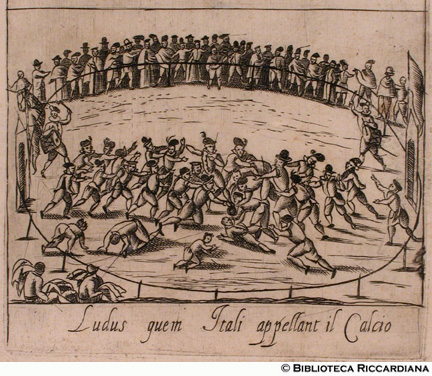 Ludus quem Itali appellant il Calcio
© BIBLIOTECA RICCARDIANA